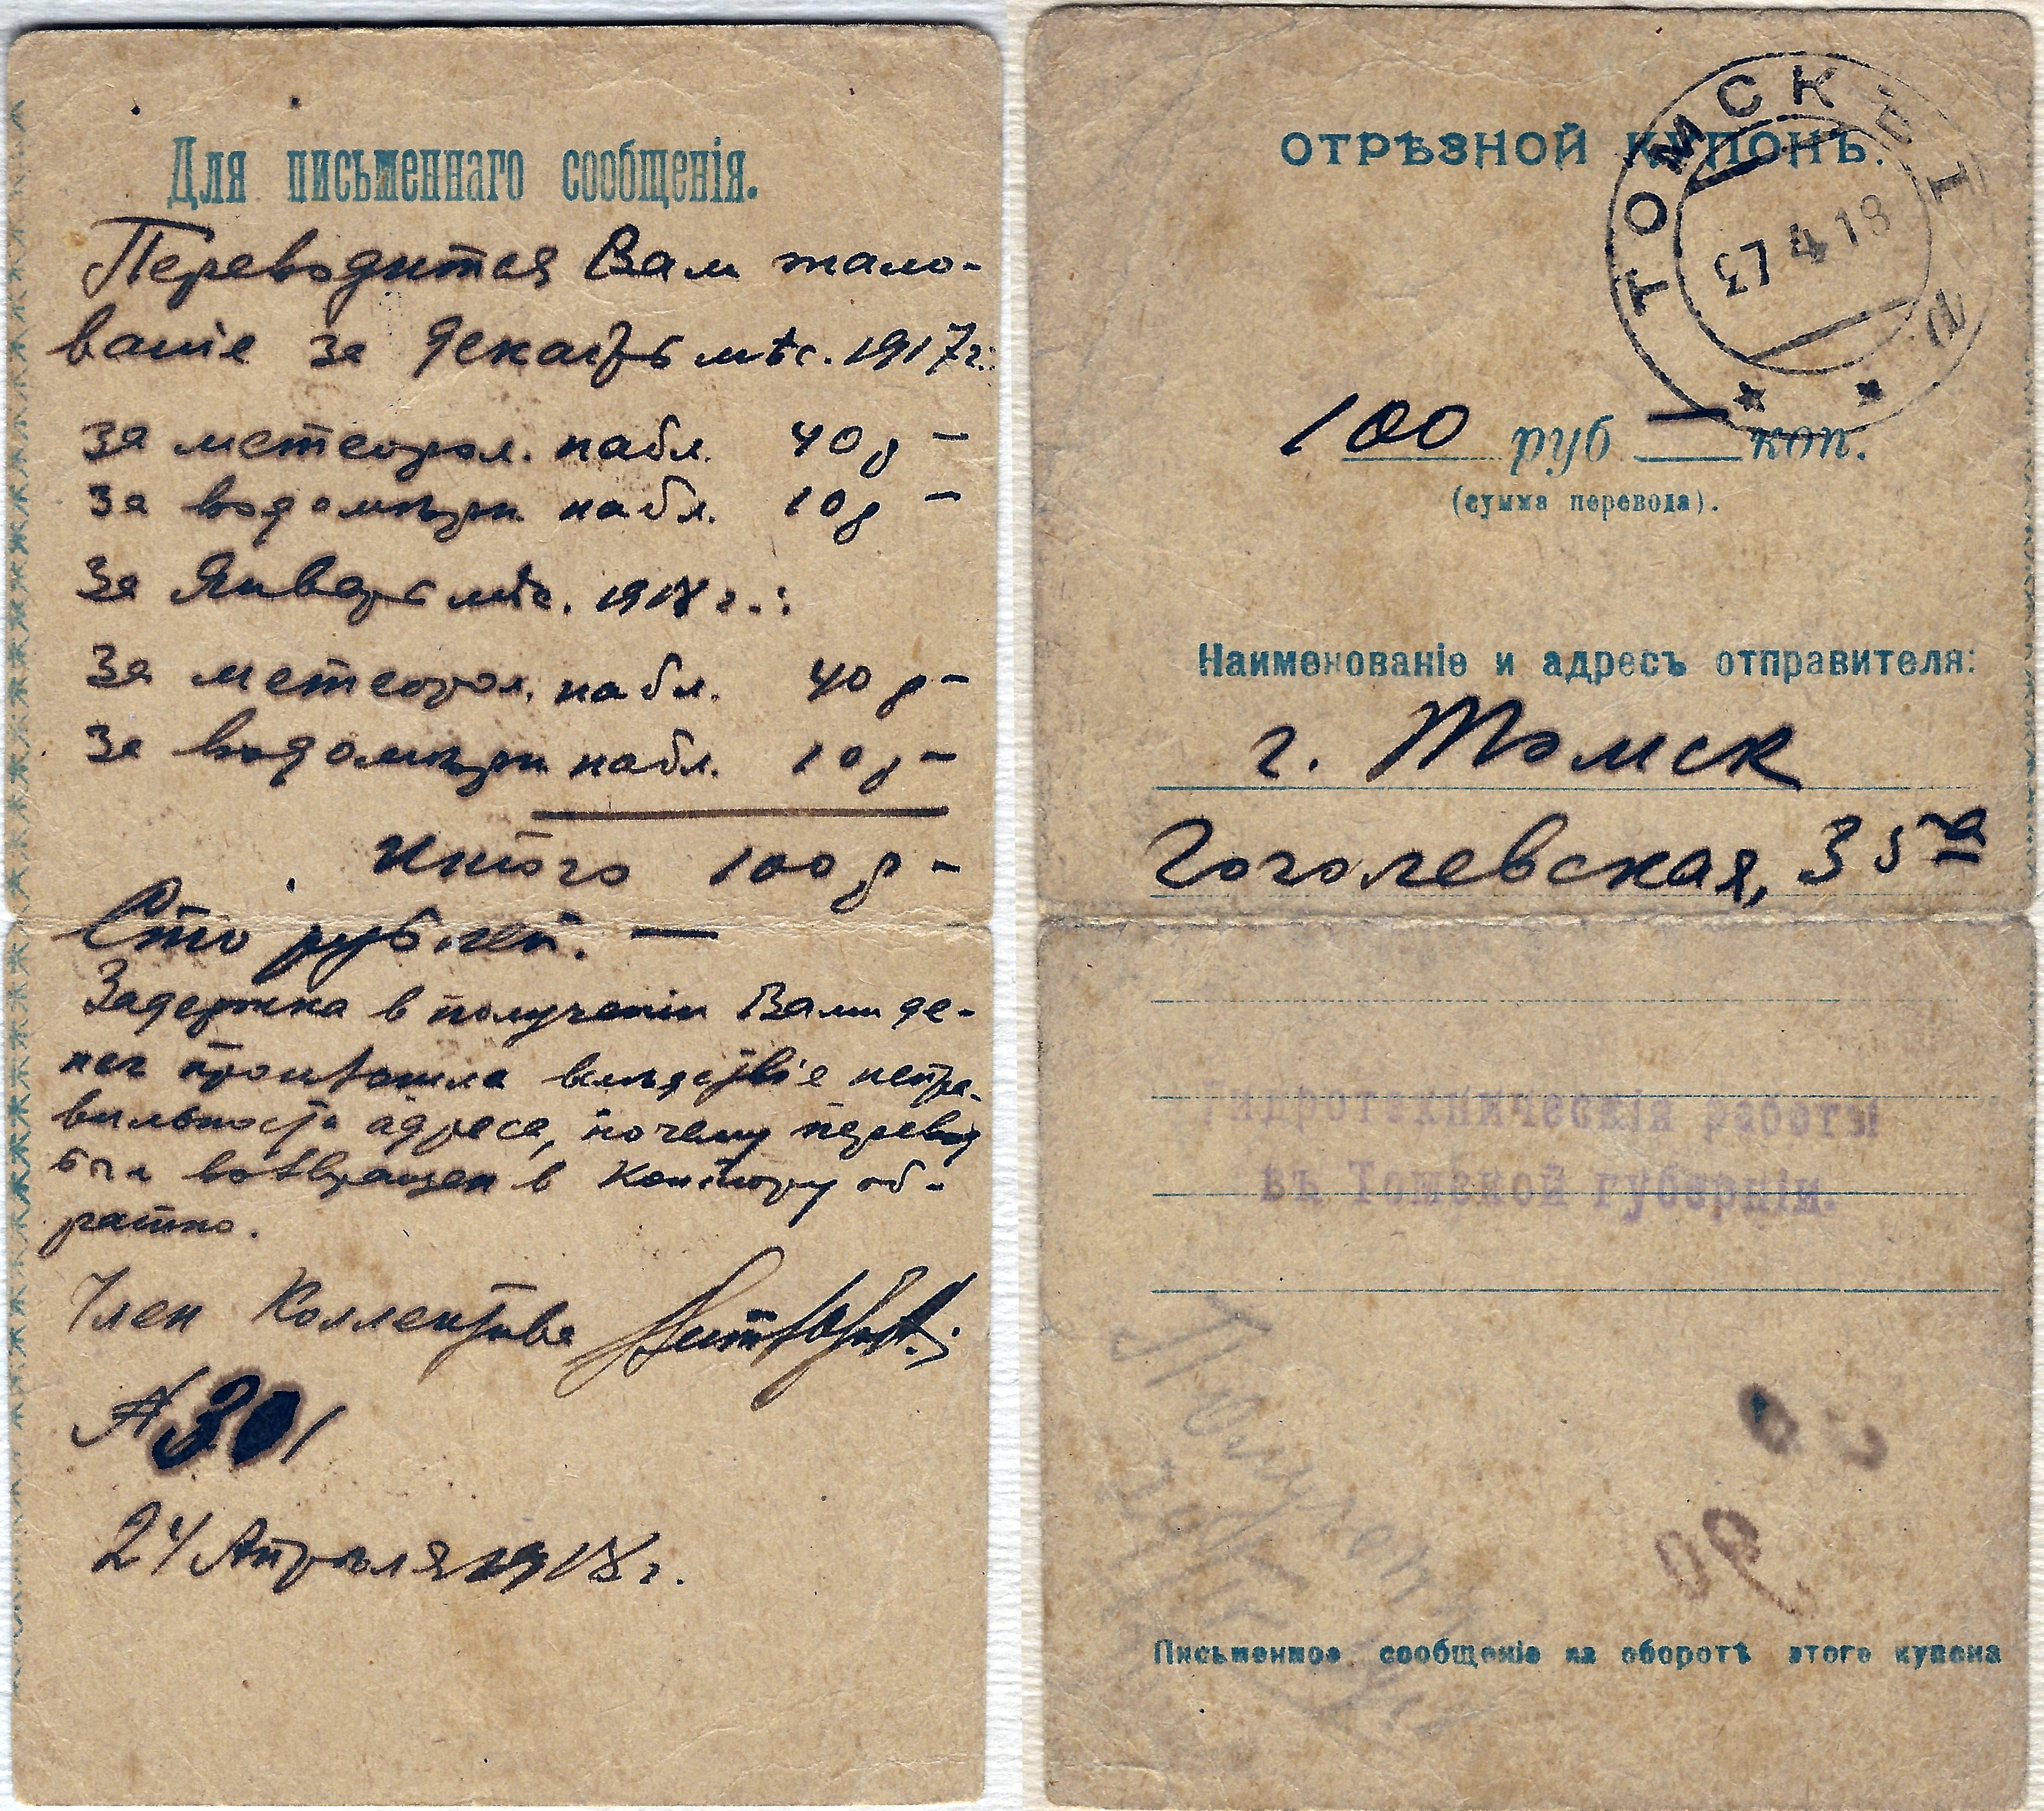 Для письменнаго сообщенія.
Переводится Вам жало-
ваніе за декабрь мѣс. 1917 г.:
За метеорол. набл. 40 р –
За водомѣрн. набл. 10 р –
За Январь мѣс. 1918 г.:
За метеорол. набл. 40 р –
За водомѣрн. набл. 10 р –
Итого 100 р –
Сто рублей. —
Задержка в полученіи Вами де-
нег произошла вслѣдствіе непра-
вильности адреса, почему перевод
был возвращен в Контору об-
ратно.
Член Коллектива
№ 301
24 Апрѣля 1918 г.
ОТРѢЗНОЙ КУПОНЪ.
ТОМСК
27 4 18
100 руб — коп.
(сумма перевода).
Наименованіе и адресъ отправителя:
г. Томск
Гоголевская, 35а
Гидротехническія работы
въ Томской губерніи.
Письменное сообщеніе на оборотѣ этого купона